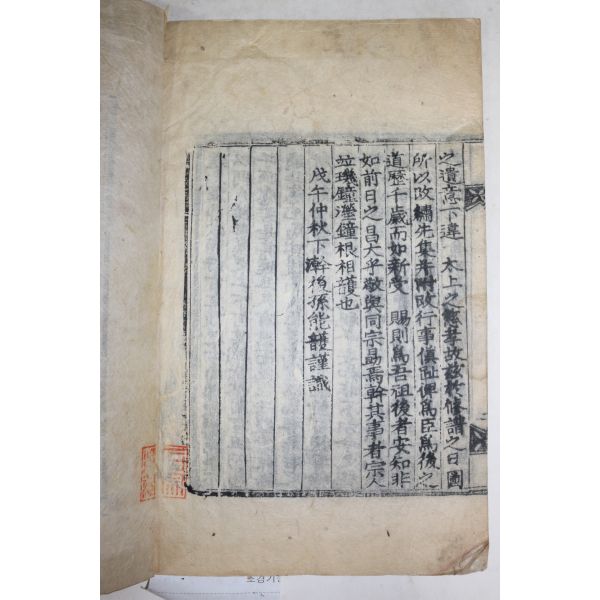 之遺意下違 太上之 孝故玆於修譜之日圖
所以改繡先集并附改行事 俾爲臣爲後之
道歷千歲而如新受 賜則爲吾祖後者安知非
如前日之昌大乎敬與同宗勗焉幹其事者宗人
竝璣鐘瀅鐘根相頀也
戊午仲秋下澣後孫能頀謹識